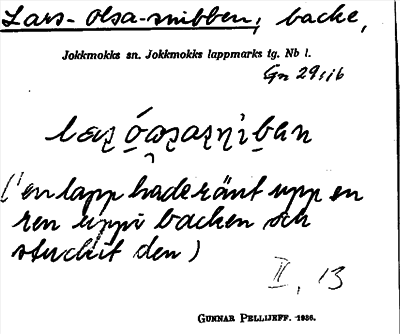 Lars-Olsa-snibben, backe,
Jokkmokks sn. Jokkmokks lappmarks tg. Nb l.
Gn 29:16
('en lapp hade ränt upp en
ren uppi backen och
stuckit den)
II, 13
GUNNAR PELLIJEFF. 1936.